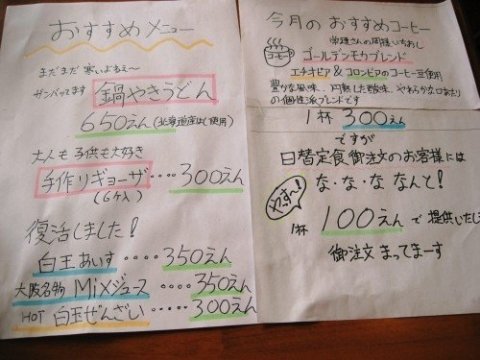 おすすめメニュー
まだまだ寒いよるぇ〜
ガンバってます 鍋やきうどん
650えん(北海道産ほ 使用)
大人も子供も大好き
手作りギョーザ ‥‥ 300えん
(6ケ入)
復活しました!
白玉あいす ‥‥ 350えん
大阪名物 MiXジュース ‥‥ 350えん
HOT 白玉ぜんざい ‥‥ 300えん
今月の おすすめコーヒー
いちおし
コーヒー ゴールデンモカブレンド
エチオピア&コロンビアのコーヒー豆使用
豊かな風味、円熟した酸味、やわらかな口あたり
の個性派ブレンドです
1杯 300えん
ですが
日替定食御注文のお客様には
な・な・な なんと!
やっす〜!
1杯 100えんで 提供いたし
御注文 まってまーす